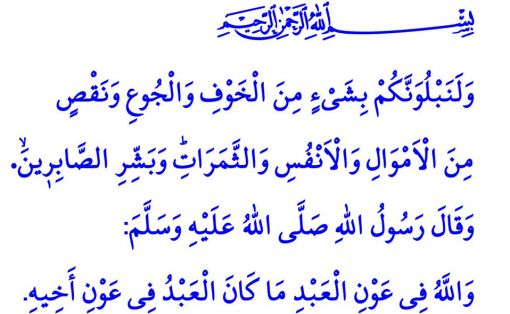 بِسْمِ اللهِ الرَّحْمٰنِ الرَّحِيمِ
وَلَنَبْلُوَنَّكُمْ بِشَیْءٍ مِنَ الْخَوْفِ وَالْجُوعِ وَنَقْصٍ
مِنَ الْاَمْوَالِ وَالْاَنْفُسِ وَالثَّمَرَاتِۜ وَبَشِّرِ الصَّابِر۪ينَۙ.
وَقَالَ رَسُولُ اللهِ صَلَّى اللهُ عَلَيْهِ وَسَلَّمَ:
وَاللَّهُ فِى عَوْنِ الْعَبْدِ مَا كَانَ الْعَبْدُ فِى عَوْنِ أَخِيهِ.